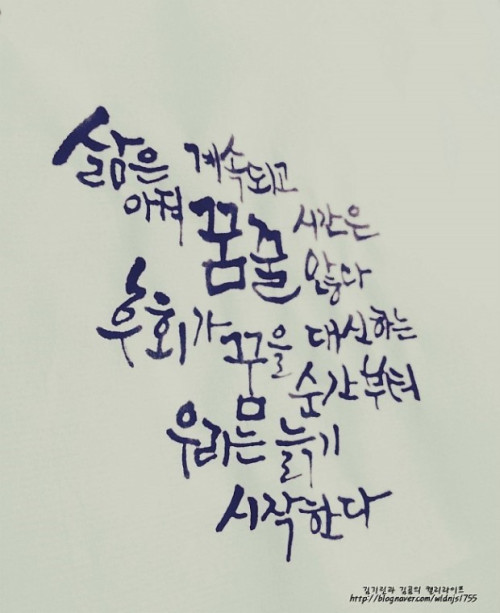 삶은 계속되고
아직 꿈꿀 시간은
많다
후회가 꿈을 대신하는
순간부터
우리는 늙기
시작한다
김기린과 김곰의 캘리라이프
http://blognaver.com/wldnjs1755